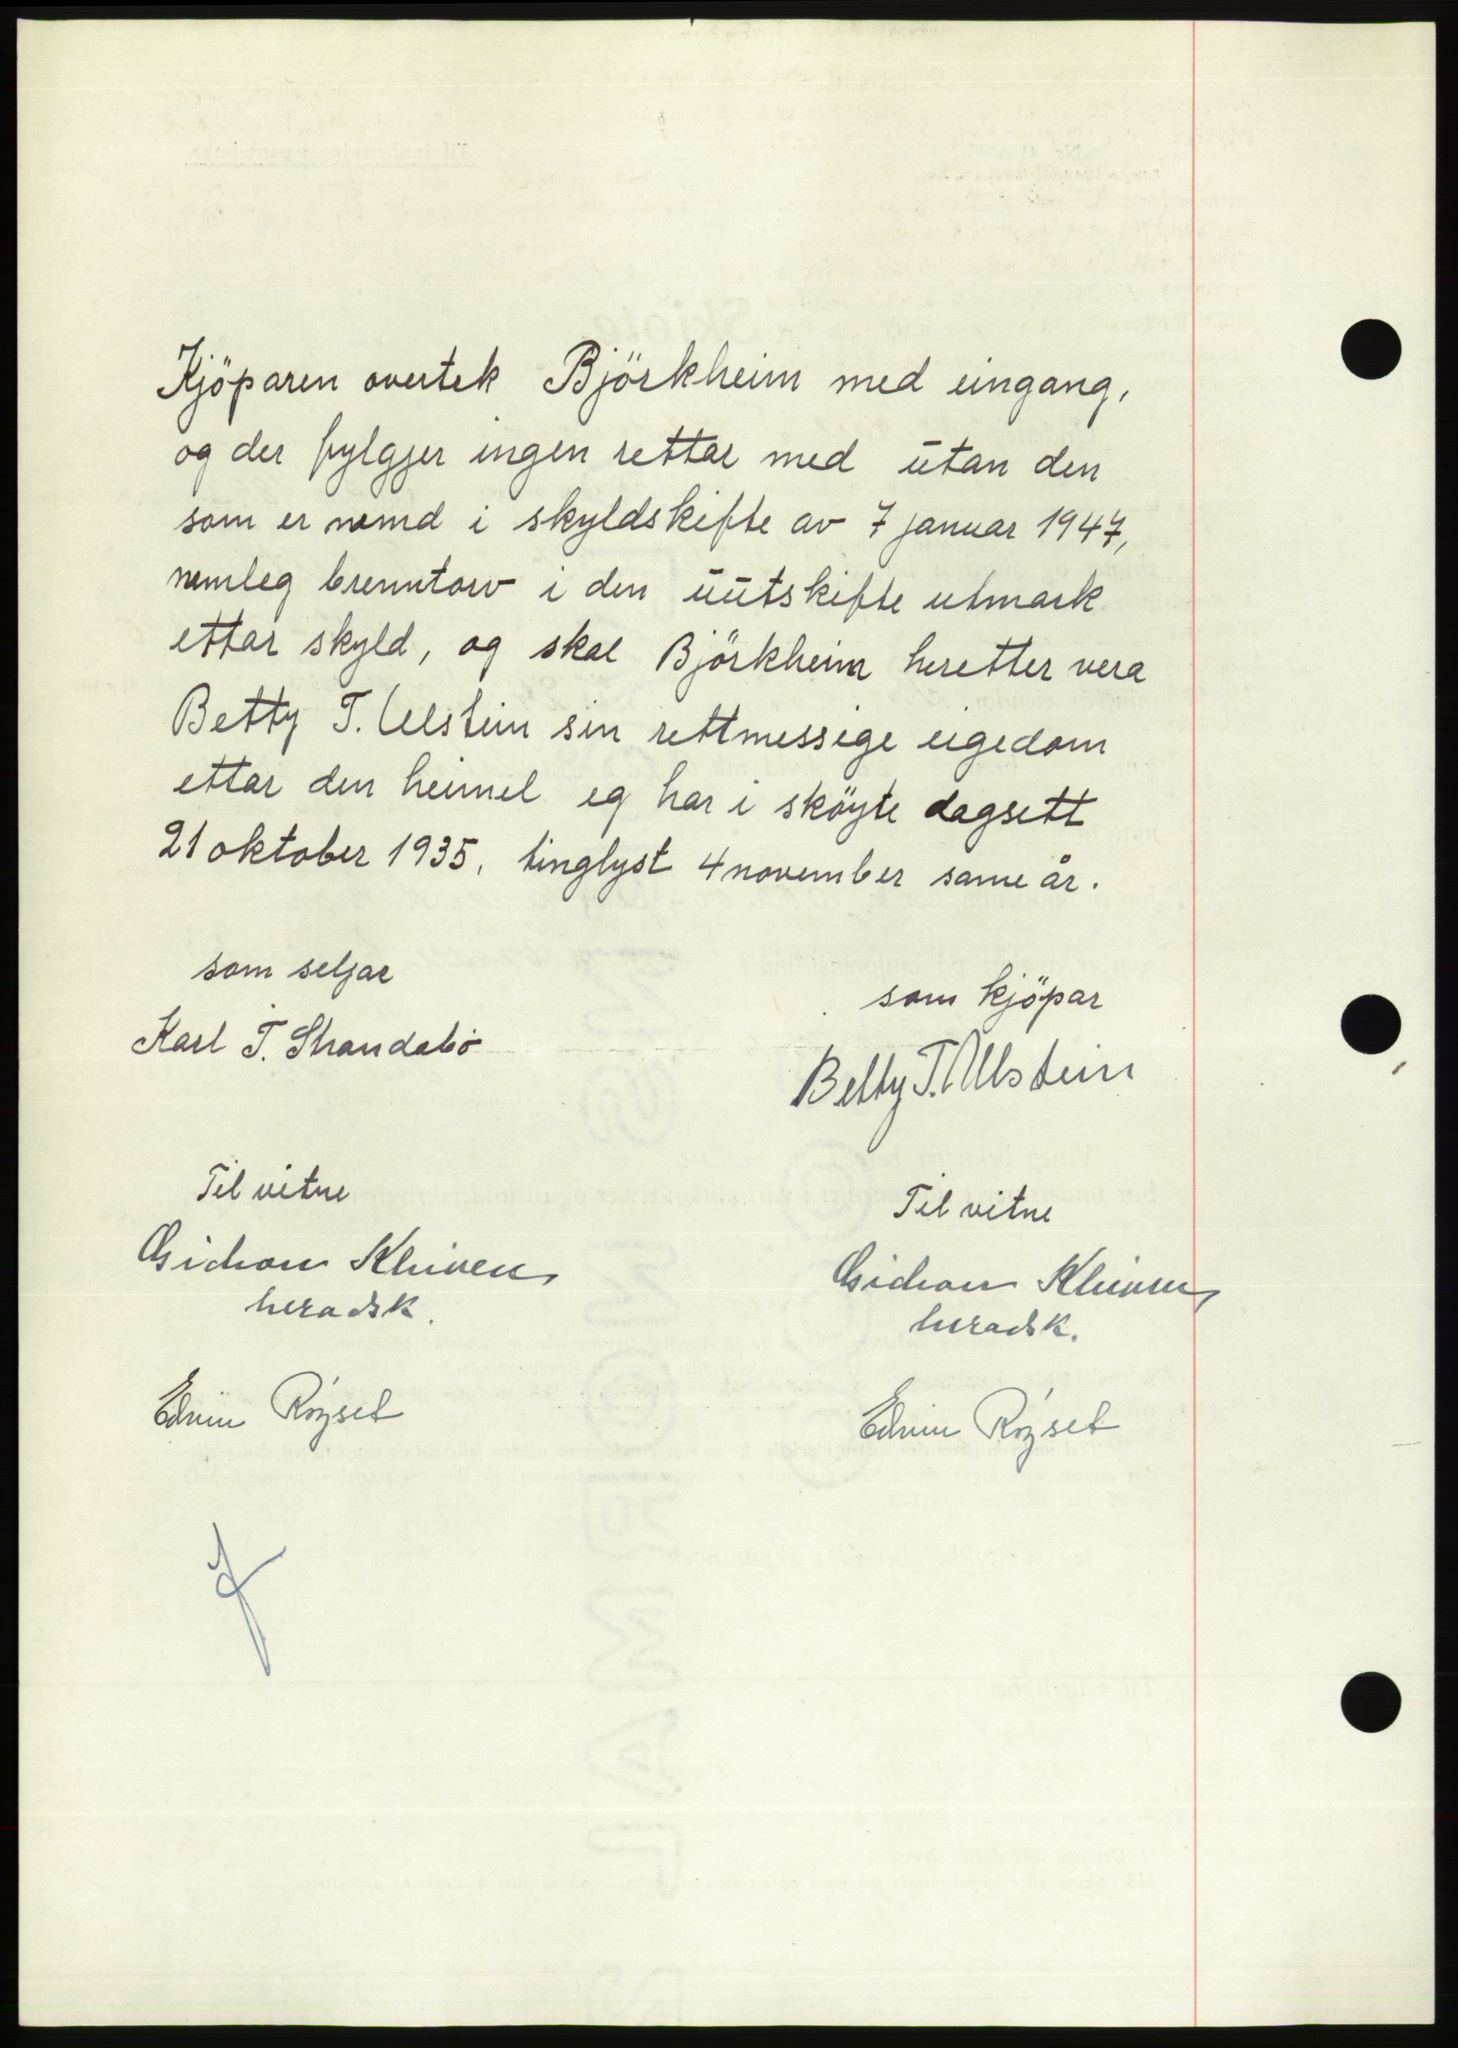 Kjöparen overtek Björkheim med eingang,
og der fylgjer ingen rettar med utan den
som er nemd i skyldskifte av 7 januar 1947,
nemleg brenntorv i den uutskifte utmark
ettar skyld, og skal Björkheim heretter vera
Betty T. Ulstein sin rettmessige eigedom
ettar den heimel eg har i sköyte dagsett
21 oktober 1935, tinglyst 4 november same år.
som seljar
Karl T. Strandabø
som kjöpar
Betty T. Ulstein
Til vitne
Gideon Kleiven
heradsk.
Edvin Røyset
Til vitne
Gideon Kleiven
heradsk.
Edvin Røyset